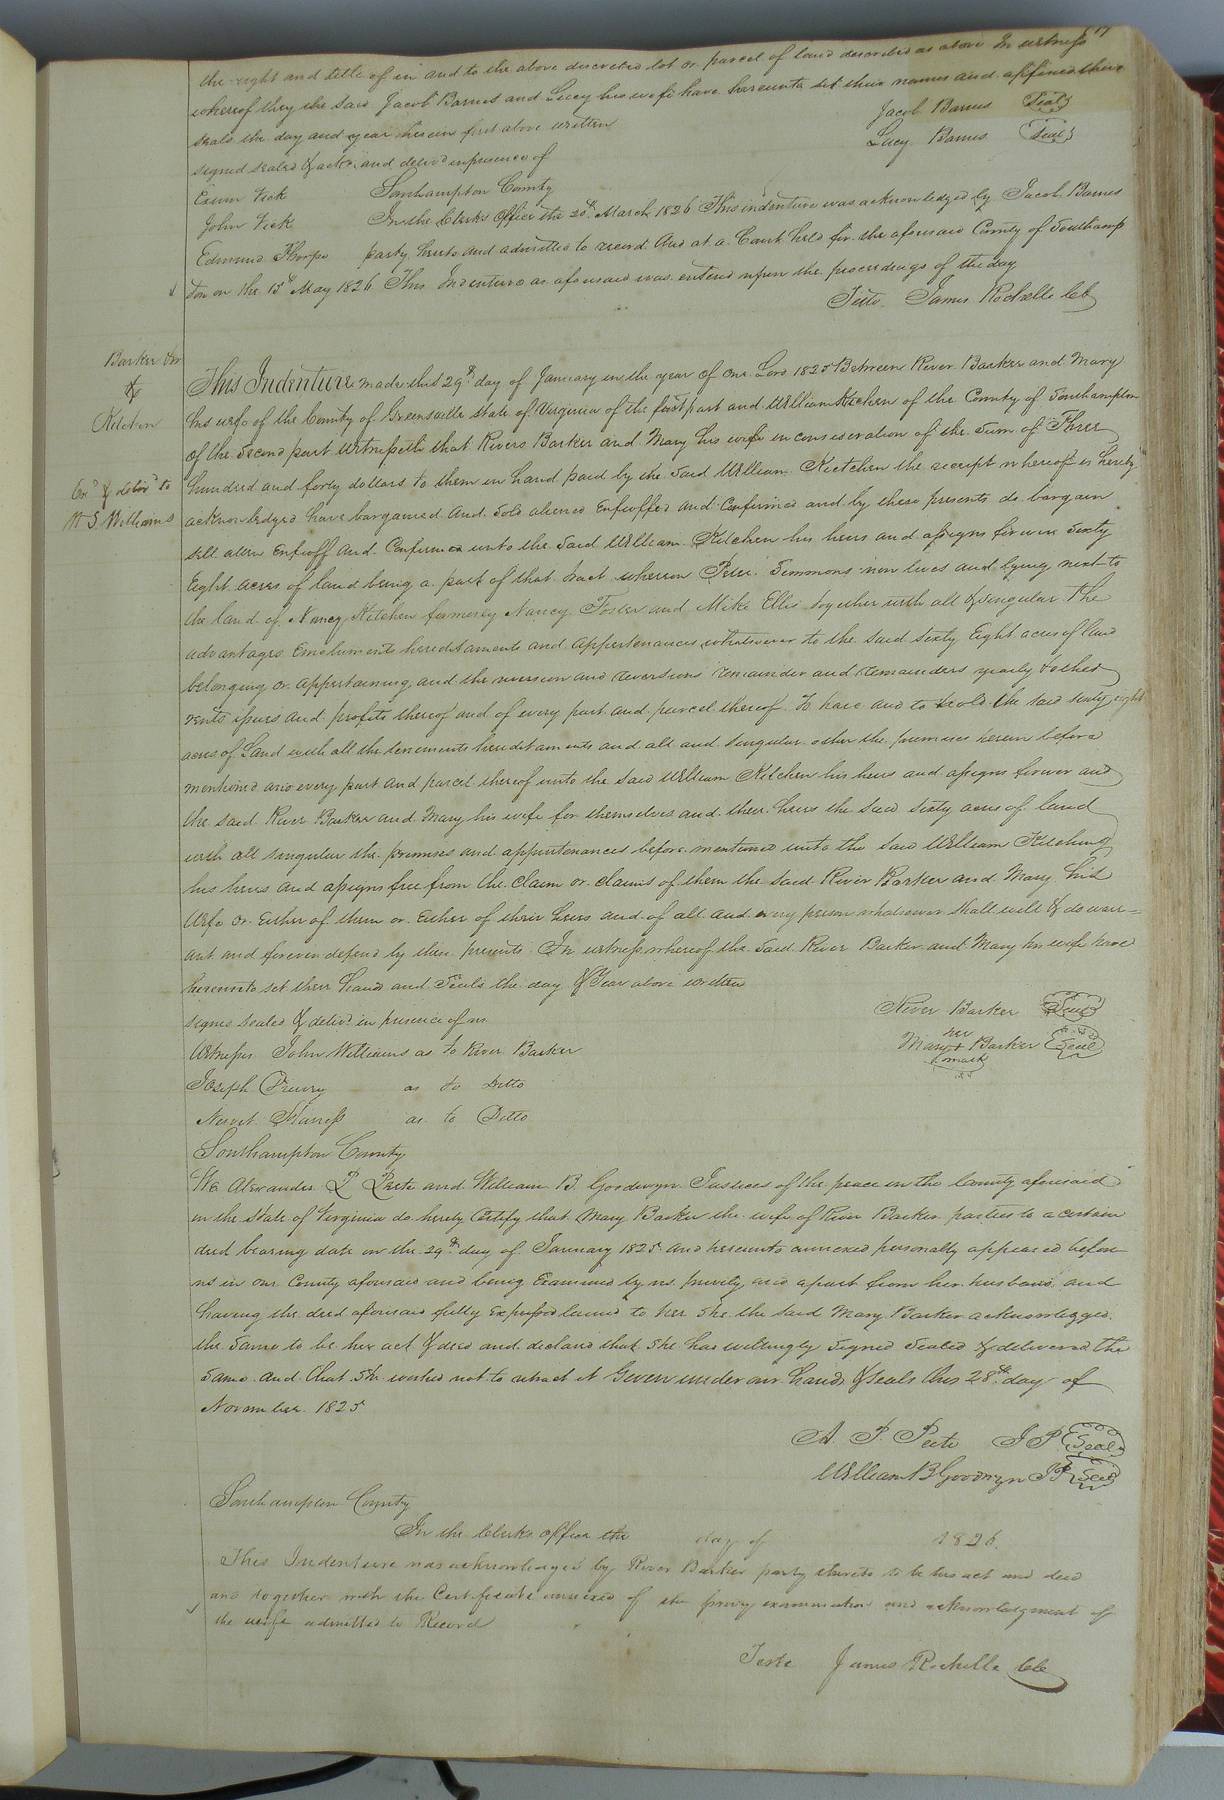 the right and title of in and to the above described lot or parcel of land described as above In witness
whereof they the said Jacob Barnes and Lucy his wife have hereunto set their names and affixed their
seals the day and year herein first above written
Jacob Barnes Seal
Lucy Barnes Seal
signed sealed & and deliv'd in presence of
Exum Vick Southampton County
John Vick In the Clerks Office the 20th March 1826 This indenture was acknowledged by Jacob Barnes
Edmund Thorpe party hereto and admitted to record And at a Court held for the aforesaid County of Southamp
ton on the 15th May 1826 This Indenture as aforesaid was entered upon the proceedings of the day
Teste James Rochelle Clk
Barker &
Kitchen
Ex'd & deliv'd to
W S Williams
This Indenture made this 29th day of January in the year of Our Lord 1825 Between River Barker and Mary
his wife of the County of Greensville State of Virginia of the first part and William Kitchen of the County of Southampton
of the Second part Witnesseth that Rivers Barker and Mary his wife in consideration of the Sum of Three
hundred and forty dollars to them in hand paid by the Said William Kietchen the receipt whereof is hereby
acknowledged have bargained and Sold aliened Enfeoffed and Confirmed and by these presents do bargain
sell alien Enfeoff and Confirm unto the Said William Kitchen his heirs and assigns forever Sixty
Eight acres of land being a part of that tract whereon Peter Simmons now lives and lying next to
the land of Nancy Kitchen formerly Nancy Foster and Mike Ellis together with all & singular The
advantages Emoluments hereditaments and appertenances whatsoever to the said Sixty Eight acres of land
belonging or appertaining, and the reversion and reversions remainder and remainders yearly & other
rents issues and profits thereof and of every part and parcel thereof To have and to hold the said sixty eight
acres of Land with all the tenements hereditaments and all and singular other the premises herein before
mentioned and every part and parcel thereof unto the Said William Kitchen his heirs and assigns forever and
the said River Barker and Mary his wife for themselves and their heirs the said Sixty acres of land
with all singular the premises and appurtenances before mentioned unto the said William Kitchen
his heirs and assigns free from the claim or claims of them the Said River Barker and Mary his
Wife or Either of them or Either of their heirs and of all and every person whatsoever Shall will & do warr=
ant and forever defend by these presents In witness whereof the Said River Barker and Mary his wife have
hereunto set their hands and Seals the day & Year above written
River Barker Seal
her
Mary + Barker Seal
mark
signed sealed & deliv'd in presence of us
Witnesses John Williams as to River Barker
Joseph Prewry as to Ditto
as to Ditto
Southampton County
We Alexander P Peete and William B Goodwyn Justices of the peace in the County aforesaid
in the State of Virginia do hereby Certify that Mary Barker the wife of River Barker parties to a certain
deed bearing date on the 29th day of January 1825 and hereunto annexed personally appeared before
us in our County aforesaid and being Examined by us privily and apart from her husband and
having the deed aforesaid fully to her She the said Mary Barker acknowledged
the Same to be her act & deed and declared that She has willingly Signed Sealed & delivered the
Same and that She wished not to retract it Given under our hands & seals this 28th day of
November 1825
A. P. Peete J P Seal
William B Goodwyn J P Seal
Southampton County
In the Clerks office the day of 1826.
This Indenture was acknowledged by River Barker party thereto to be his act and deed
and together with the Certificate annexed of the privy examination and acknowledgment of
the wife admitted to Record
Teste James Rochelle Clk